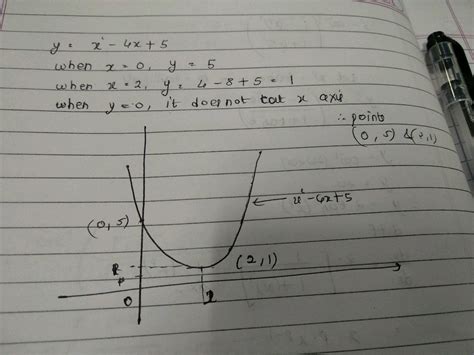 y = x² - 4x + 5
when x = 0, y = 5
when x = 2, y = 4 - 8 + 5 = 1
when y = 0, it does not cut x axis
∴ points
(0, 5) & (2, 1)
x² - 4x + 5
(0, 5)
(2, 1)
0
2